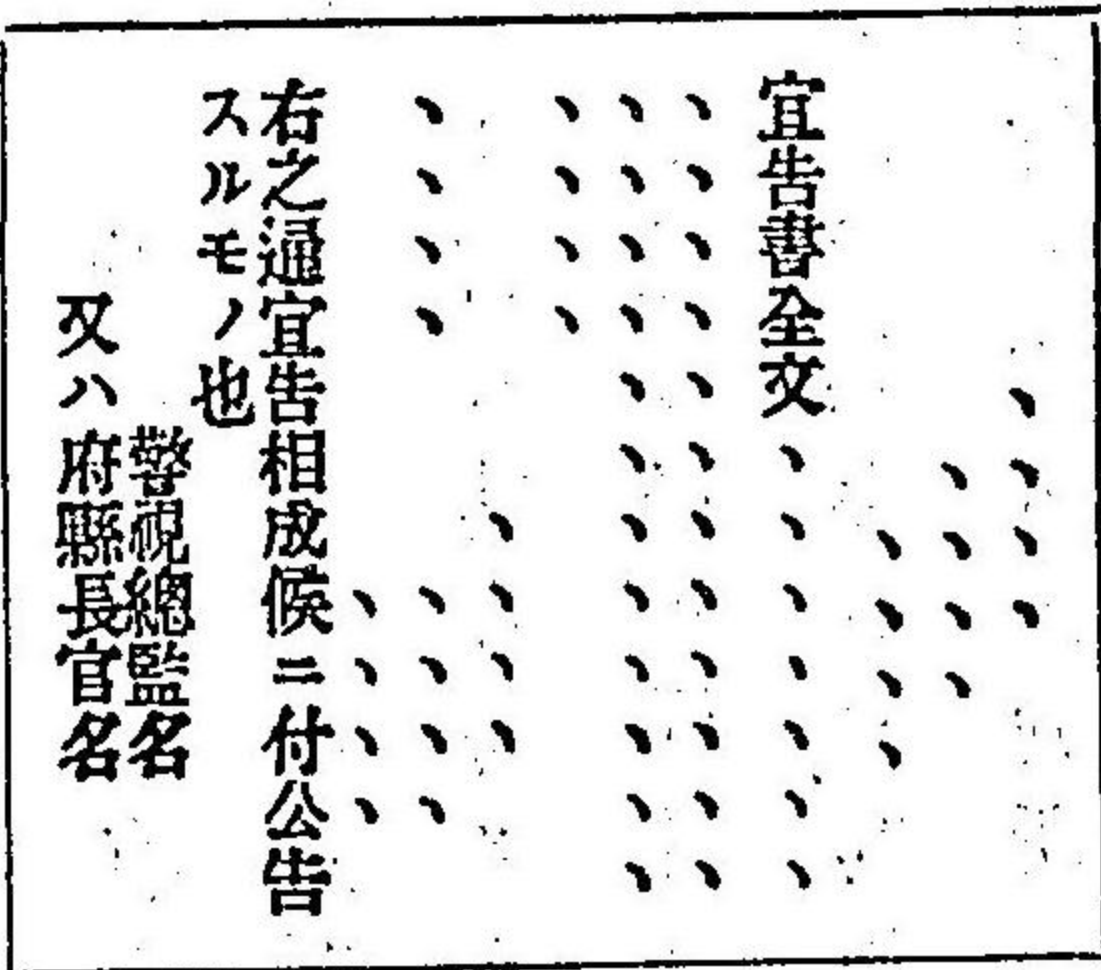 、、、、
、、、、
、、、、
宣告書全文、、、、、、、
、、、、、、、、、、、、
、、、、、、、、、、、、
、、、、
、、、、
、、、、　、、、、
、、、、
右之通宣告相成候ニ付公告
スルモノ也
警視總監名
又ハ府縣長官名